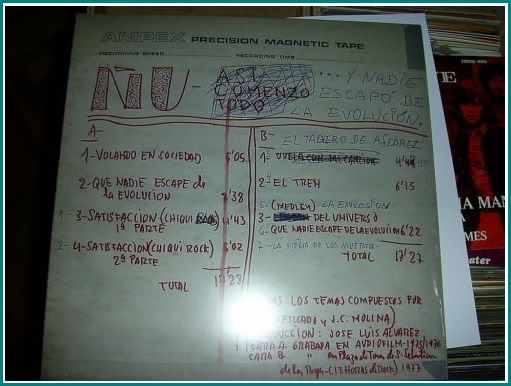 AMPEX PRECISION MAGNETIC TAPE
RECORDING SPEED RECORDING TIME
ÑU - ASI COMENZO TODO
...Y NADIE
ESCAPÓ DE
LA EVOLUCIÓN.
A-
1- VOLANDO EN SOCIEDAD 5'05
2- QUE NADIE ESCAPE de
la EVOLUCION 2'38
1- 3- SATISFACCION (CHIQUI ROCK) 4'43
1ª PARTE
2- 4- SATISFACCION (CHIQUI ROCK) 3'02
2ª PARTE
TOTAL
B- EL TABLERO DE AJEDREZ
1ª VUELA CON MI CANCION
2ª EL TREN 6'15
5- (MEDLEY) LA EXPLOSION
3- DEL UNIVERSO
6- QUE NADIE ESCAPE DE LA EVOLUCION 6'22
7- LA FIESTA DE LOS MUERTOS
TOTAL 17'27
LOS TEMAS COMPUESTOS POR
y J.C. MOLINA)
JOSE LUIS ALVAREZ
CARA A- GRABADA EN AUDIOFILM-1975/1976
CARA B " en Plaza de Toros de S. Sebastian
de los Reyes-(12 HORAS de Rock) 1977
IA MAN
MES